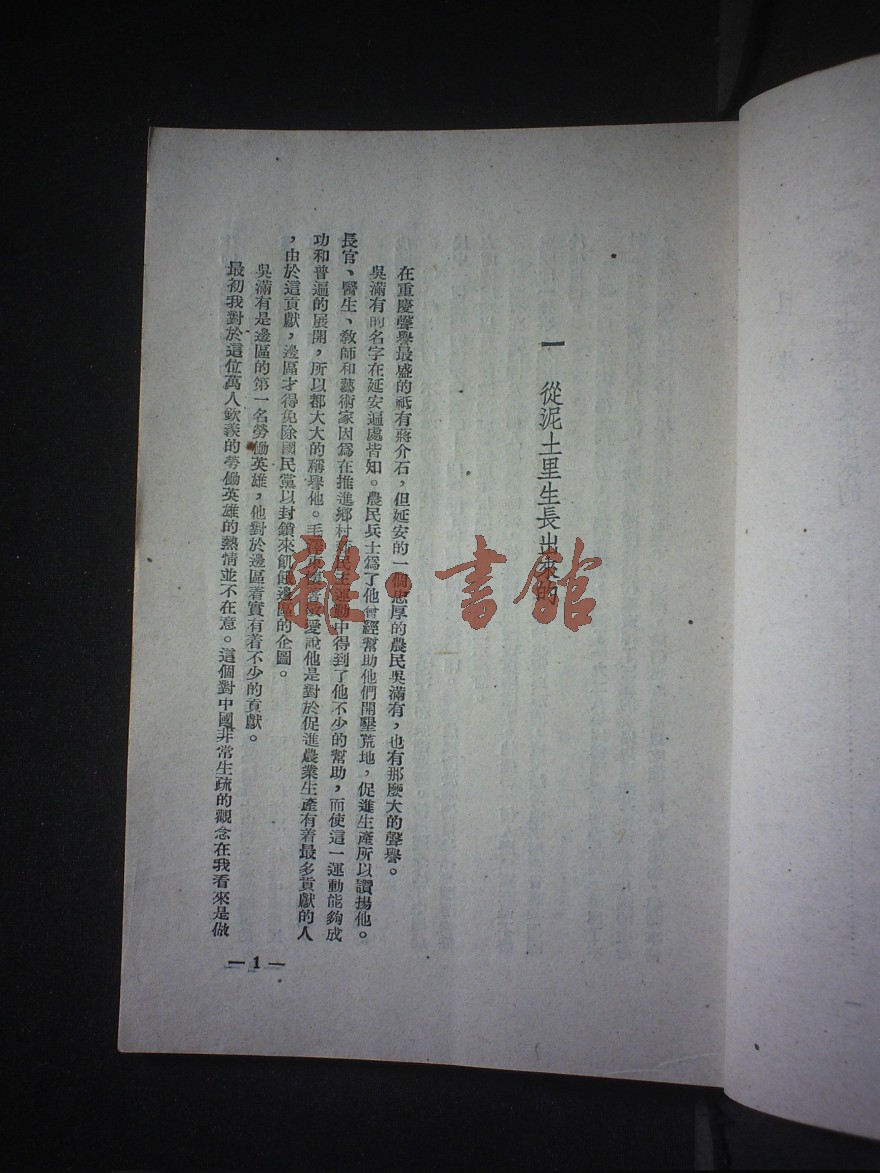 一　從泥土里生長出來的
在重慶聲譽最盛的祗有蔣介石，但延安的一個忠厚的農民吳滿有，也有那麼大的聲譽。
吳滿有的名字在延安遍處皆知。農民兵士爲了他曾經幫助他們開墾荒地，促進生產所以讚揚他。
長官、醫生、教師和藝術家因爲在推進鄉村新民主運動中得到了他不少的幫助，而使這一運動能夠成
功和普遍的展開，所以都大大的稱譽他。毛澤東懷着敬愛說他是對於促進農業生產有着最多貢獻的人
，由於這貢獻，邊區才得免除國民黨以封鎖來飢餓邊區的企圖。
吳滿有是邊區的第一名勞働英雄，他對於邊區着實有着不少的貢獻。
最初我對於這位萬人欽羨的勞働英雄的熱情並不在意。這個對中國非常生疏的觀念在我看來是做
— 1 —
龍·書館